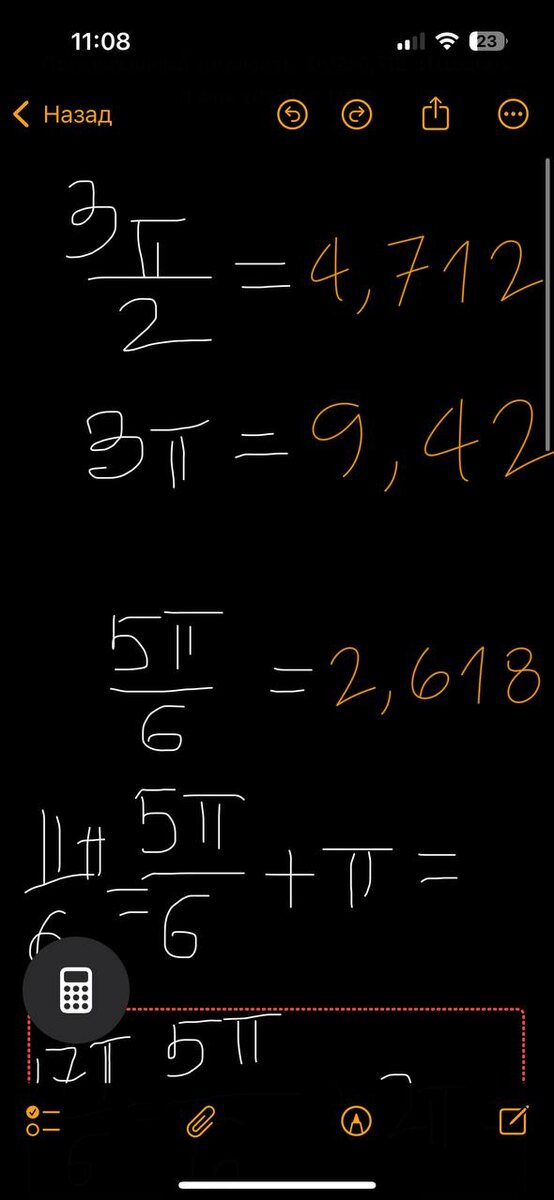 11:08 23
Назад
3π/2 = 4,712
3π = 9,42
5π/6 = 2,618
11π/6 = 5π/6 + π =
17π 5π